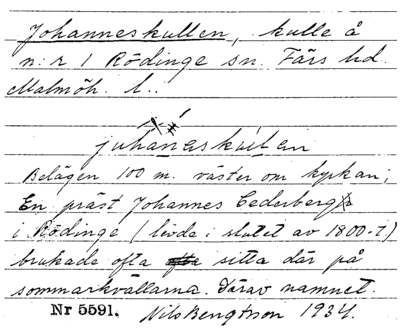 Johanneskullen, kulle å
n:r 1 Rödinge sn. Färs hd.
Malmöh. l..
juhaneskulen
Belägen 100 m. väster om kyrkan;
En präst Johannes Cederberg
i Rödinge (levde i slutet av 1800-t)
brukade ofta sitta där på
sommarkvällarna. Därav namnet.
Nr 5591. Nils Bengtson 1934.